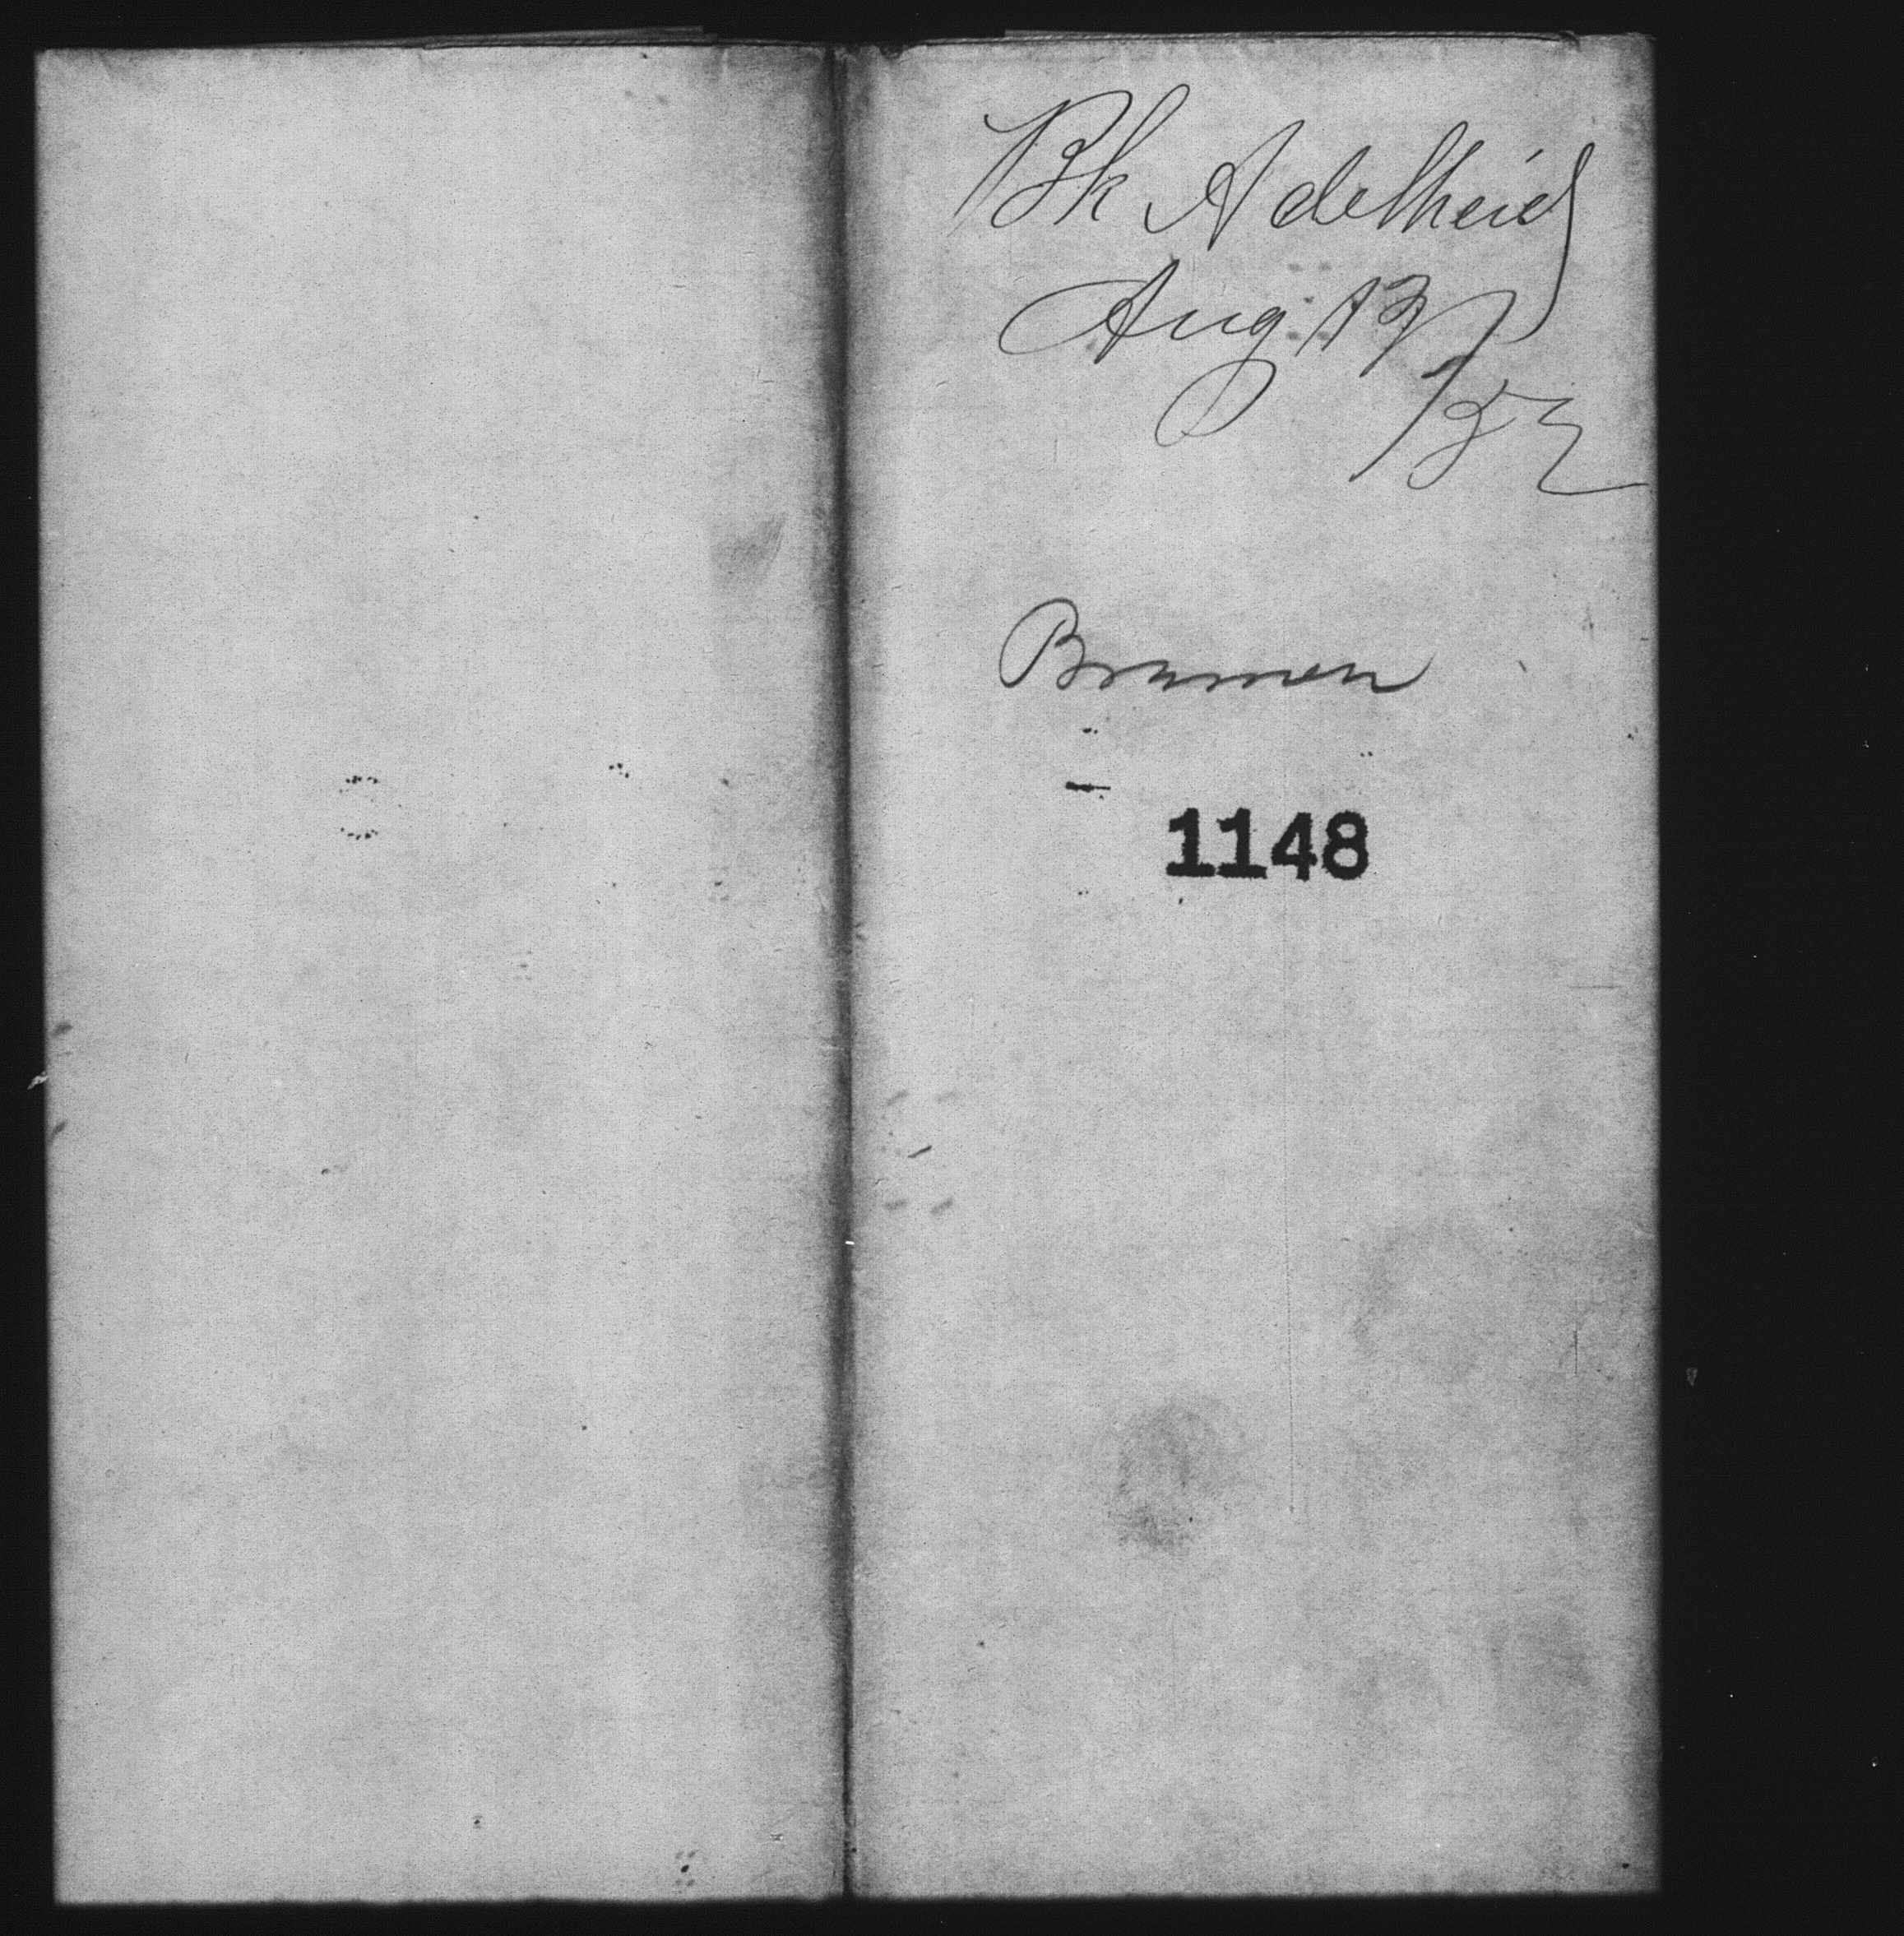 Bk Adelheid
Aug 13/52
Bremen
1148